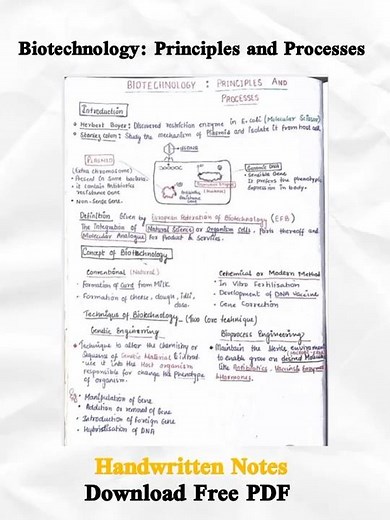 Biotechnology: Principles and Processes
BIOTECHNOLOGY : PRINCIPLES AND
PROCESSES
Introduction
* Herbert Boyer: Discovered restriction enzyme in E.coli (Molecular Scissor)
* Stanley Cohen: Study the mechanism of Plasmid and isolate it from host cell
PLASMID
(Extra chromosome)
• Present in some bacteria
• it contain Antibiotics
resistance Gene
• Non-Sense Gene.
Genomic DNA
• Sensible Gene
It prefers the phenotypic
expression in body.
Definition Given by European Federation of Biotechnology (EFB)
The integration of Natural Science or Organism Cells, parts thereof and
Molecular Analogue for Product & Services.
Concept of Biotechnology
Conventional (Natural)
• Formation of Curd from Milk
• Formation of cheese, dough, idli,
dosa.
Modern Method
• In Vitro Fertilisation
• Development of DNA Vaccine
• Gene Correction
Technique of Biotechnology - (Two Core technique)
Genetic Engineering
* Technique to alter the chemistry or
Sequence of Genetic Material
it into the Host organism
responsible for change the Phenotype
of organism.
• Manipulation of Gene
• Addition or removal of Gene
• Introduction of foreign Gene
• Hybridisation of DNA
Bioprocess Engineering
* Maintain the Sterile environment
to enable grow on desired
like Antibiotics, Vaccines Enzymes
Hormones.
Handwritten Notes
Download Free PDF